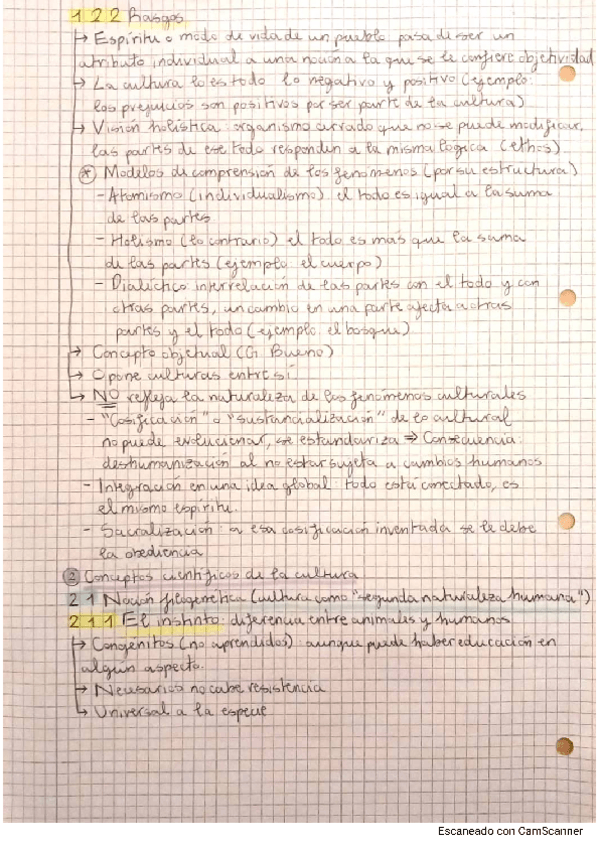 1 2 2 Rasgos
→ Espíritu o modo de vida de un pueblo pasa de ser un
atributo individual a una noción a la que se le confiere objetividad
→ La cultura lo es todo lo negativo y positivo (ejemplo:
los prejuicios son positivos por ser parte de la cultura)
→ Visión holística: organismo cerrado que no se puede modificar,
las partes de ese todo responden a la misma lógica (ethos)
* Modelos de comprensión de los fenómenos (por su estructura)
- Atomismo (individualismo) el todo es igual a la suma
de las partes
- Holismo (lo contrario) el todo es más que la suma
de las partes (ejemplo el cuerpo)
- Dialéctico interrelación de las partes con el todo y con
otras partes, un cambio en una parte afecta a otras
partes y el todo (ejemplo el bosque)
→ Concepto objetual (G. Bueno)
→ Opone culturas entre sí
→ NO refleja la naturaleza de los fenómenos culturales
- "Cosificación" o "sustancialización" de lo cultural
no puede evolucionar, se estandariza ⇒ Consecuencia:
deshumanización al no estar sujeta a cambios humanos
- Integración en una idea global: todo está conectado, es
el mismo espíritu.
- Sacralización: a esa cosificación inventada se le debe
la obediencia
2 Conceptos científicos de la cultura
2 1 Noción filogenética (cultura como "segunda naturaleza humana")
2 1 1 El instinto: diferencia entre animales y humanos
→ Congénitos (no aprendidos): aunque puede haber educación en
algún aspecto.
→ Necesarios no cabe resistencia
→ Universal a la especie
Escaneado con CamScanner